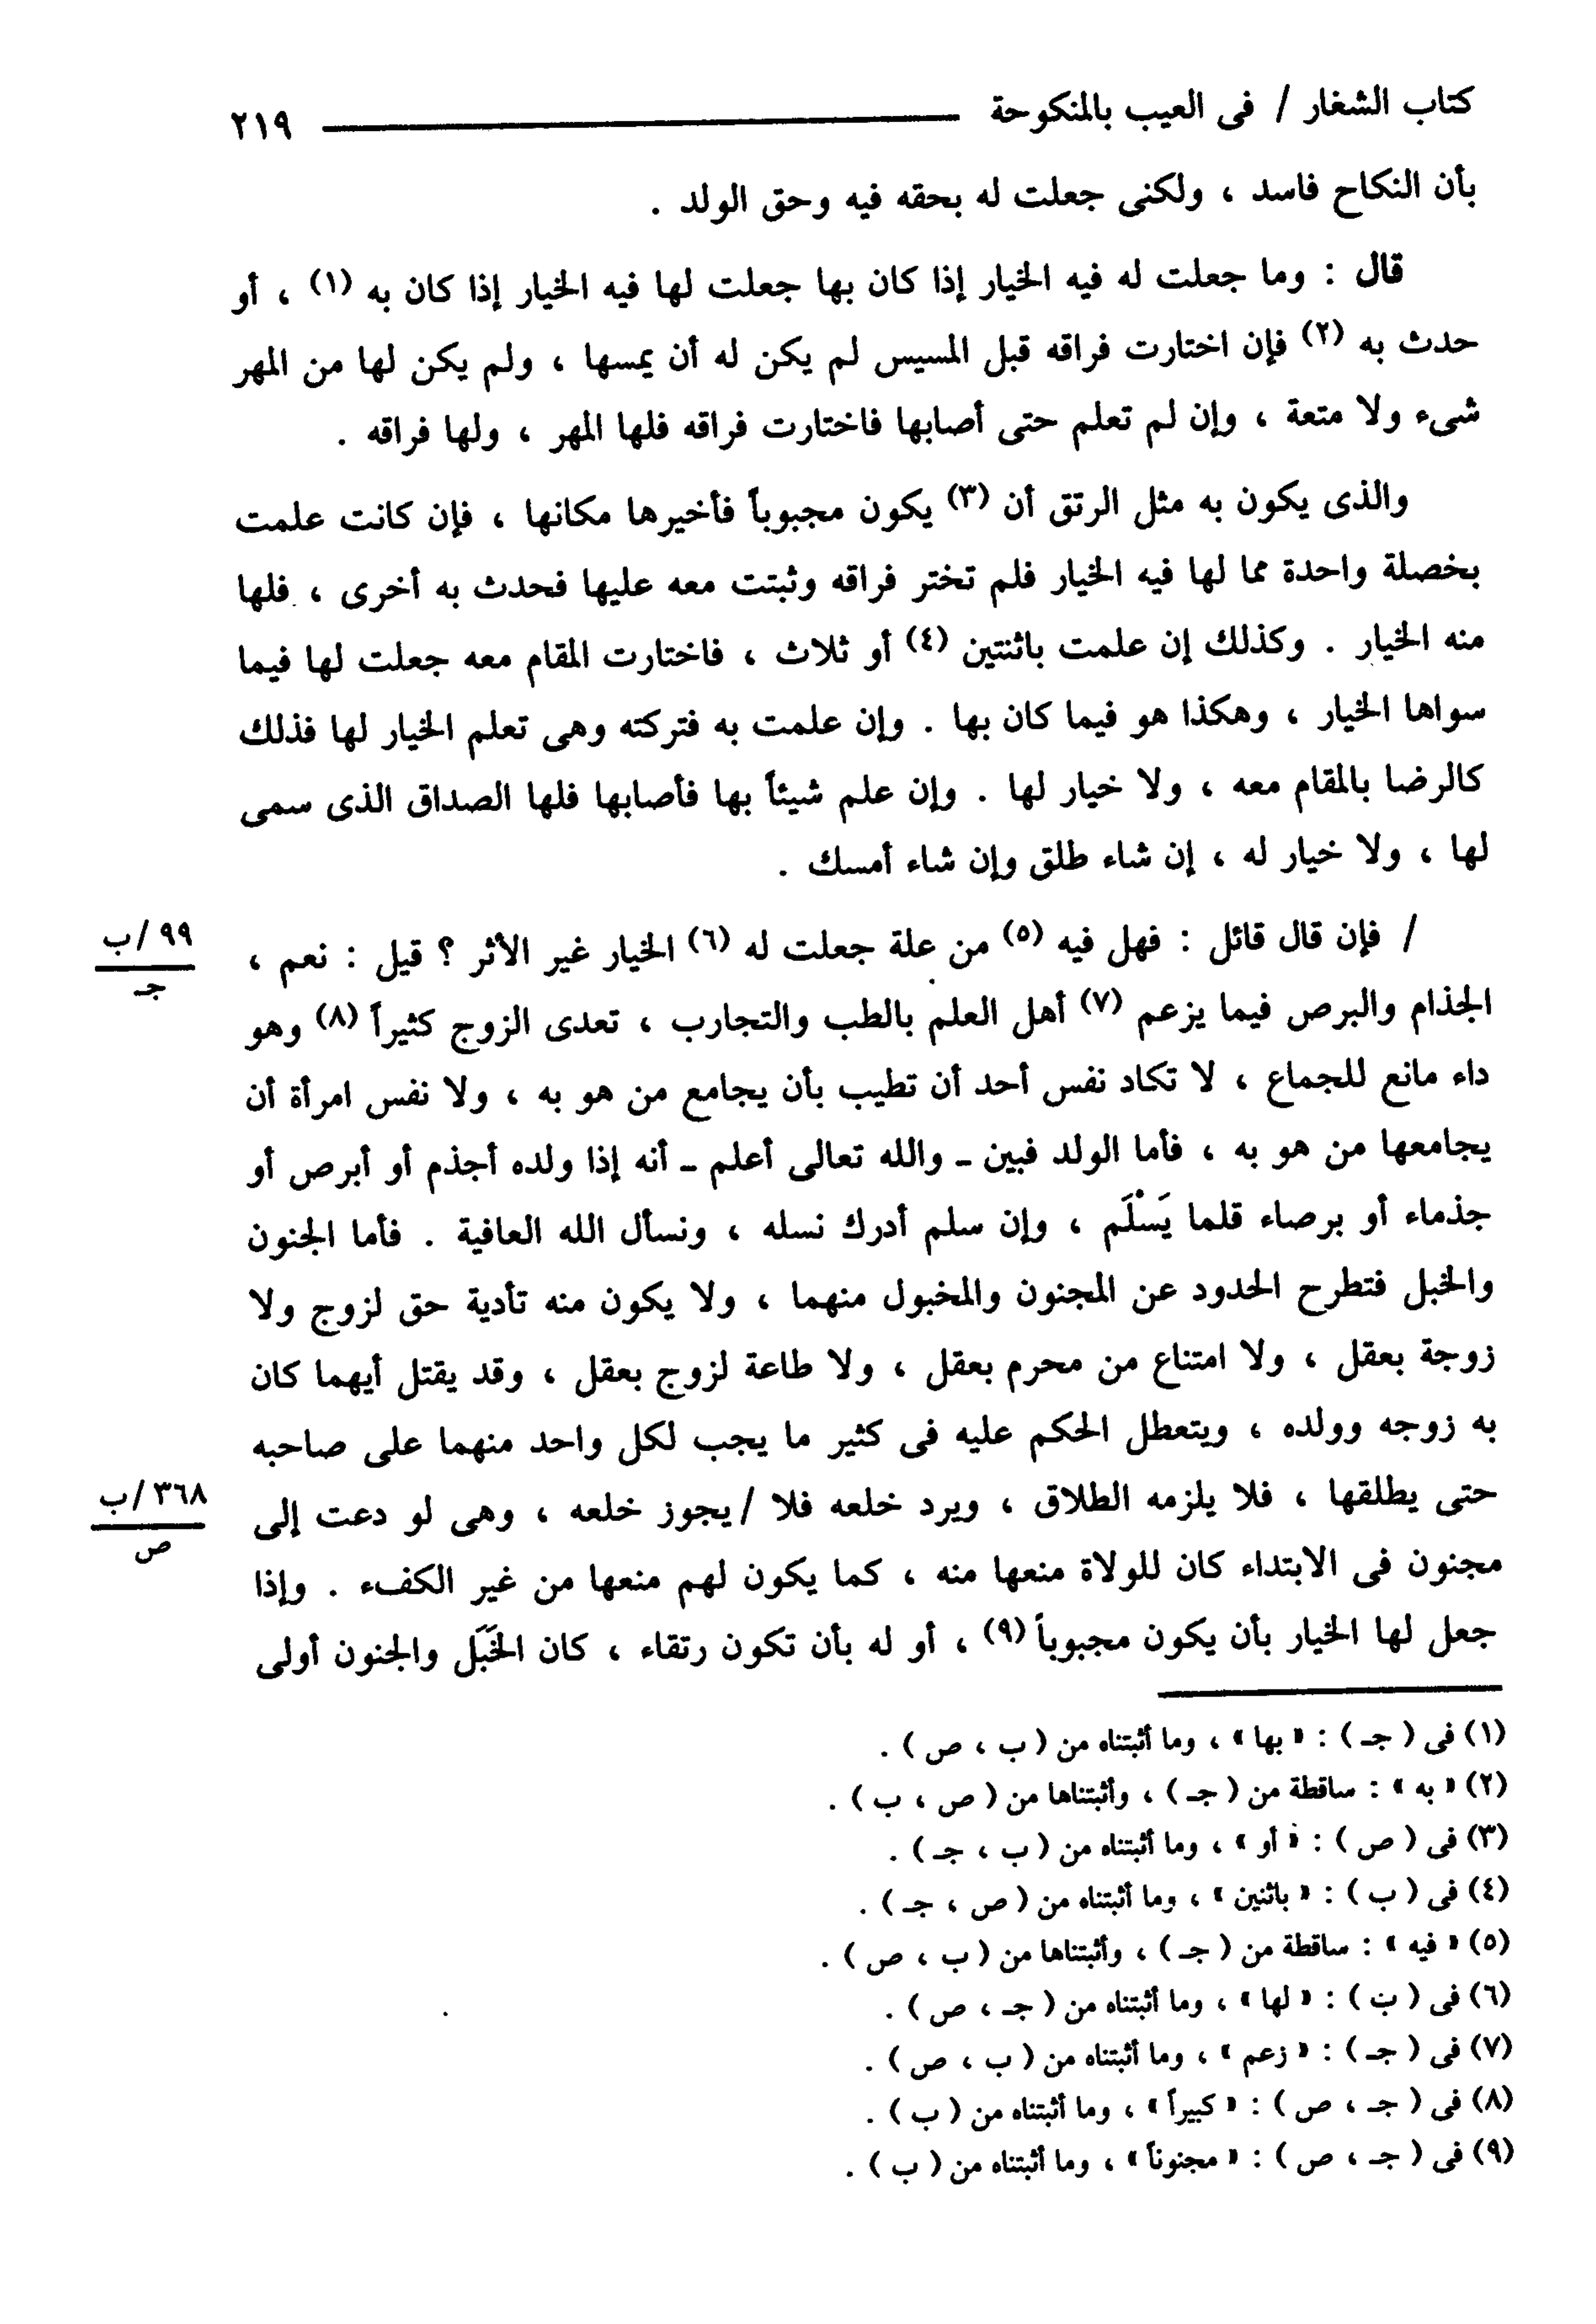 كتاب الشغار / فى العيب بالمنكوحة ٢١٩
بأن النكاح فاسد ، ولكنى جعلت له بحقه فيه وحق الولد .
قال : وما جعلت له فيه الخيار إذا كان بها جعلت لها فيه الخيار إذا كان به (١) ، أو
حدث به (٢) فإن اختارت فراقه قبل المسيس لم يكن له أن يمسها ، ولم يكن لها من المهر
شىء ولا متعة ، وإن لم تعلم حتى أصابها فاختارت فراقه فلها المهر ، ولها فراقه .
والذى يكون به مثل الرتق أن (٣) يكون مجبوباً فأخيرها مكانها ، فإن كانت علمت
بخصلة واحدة مما لها فيه الخيار فلم تختر فراقه وثبتت معه عليها فحدث به أخرى ، فلها
منه الخيار . وكذلك إن علمت باثنتين (٤) أو ثلاث ، فاختارت المقام معه جعلت لها فيما
سواها الخيار ، وهكذا هو فيما كان بها . وإن علمت به فتركته وهى تعلم الخيار لها فذلك
كالرضا بالمقام معه ، ولا خيار لها . وإن علم شيئاً بها فأصابها فلها الصداق الذى سمى
لها ، ولا خيار له ، إن شاء طلق وإن شاء أمسك .
/ فإن قال قائل : فهل فيه (٥) من علة جعلت له (٦) الخيار غير الأثر ؟ قيل : نعم ،
٩٩ /ب
جـ
الجذام والبرص فيما يزعم (٧) أهل العلم بالطب والتجارب ، تعدى الزوج كثيراً (٨) وهو
داء مانع للجماع ، لا تكاد نفس أحد أن تطيب بأن يجامع من هو به ، ولا نفس امرأة أن
يجامعها من هو به ، فأما الولد فبين ـ والله تعالى أعلم ـ أنه إذا ولده أجذم أو أبرص أو
جذماء أو برصاء قلما يَسْلَم ، وإن سلم أدرك نسله ، ونسأل الله العافية . فأما الجنون
والخبل فتطرح الحدود عن المجنون والمخبول منهما ، ولا يكون منه تأدية حق لزوج ولا
زوجة بعقل ، ولا امتناع من محرم بعقل ، ولا طاعة لزوج بعقل ، وقد يقتل أيهما كان
به زوجه وولده ، ويتعطل الحكم عليه فى كثير ما يجب لكل واحد منهما على صاحبه
حتى يطلقها ، فلا يلزمه الطلاق ، ويرد خلعه فلا / يجوز خلعه ، وهى لو دعت إلى
٣٦٨ /ب
ص
مجنون فى الابتداء كان للولاة منعها منه ، كما يكون لهم منعها من غير الكفء . وإذا
جعل لها الخيار بأن يكون مجبوباً (٩) ، أو له بأن تكون رتقاء ، كان الخَبَل والجنون أولى
(١) فى ( جـ ) : « بها » ، وما أثبتناه من ( ب ، ص ) .
(٢) « به » : ساقطة من ( جـ ) ، وأثبتناها من ( ص ، ب ) .
(٣) فى ( ص ) : « أو » ، وما أثبتناه من ( ب ، جـ ) .
(٤) فى ( ب ) : « باثنين » ، وما أثبتناه من ( ص ، جـ ) .
(٥) « فيه » : ساقطة من ( جـ ) ، وأثبتناها من ( ب ، ص ) .
(٦) فى ( ب ) : « لها » ، وما أثبتناه من ( جـ ، ص ) .
(٧) فى ( جـ ) : « زعم » ، وما أثبتناه من ( ب ، ص ) .
(٨) فى ( جـ ، ص ) : « كبيراً » ، وما أثبتناه من ( ب ) .
(٩) فى ( جـ ، ص ) : « مجنوناً » ، وما أثبتناه من ( ب ) .